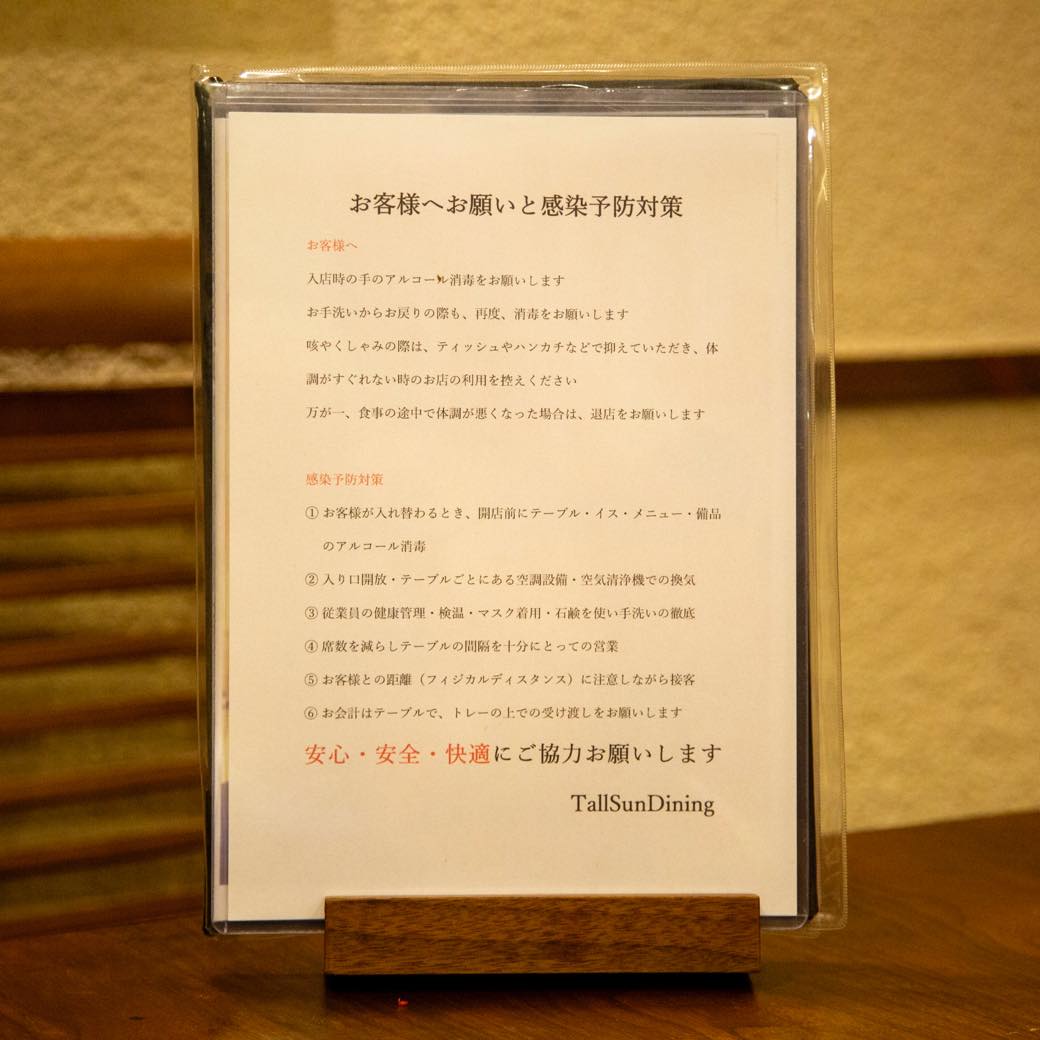 お客様へお願いと感染予防対策
お客様へ
入店時の手のアルコール消毒をお願いします
お手洗いからお戻りの際も、再度、消毒をお願いします
咳やくしゃみの際は、ティッシュやハンカチなどで抑えていただき、体
調がすぐれない時のお店の利用を控えください
万が一、食事の途中で体調が悪くなった場合は、退店をお願いします
感染予防対策
① お客様が入れ替わるとき、開店前にテーブル・イス・メニュー・備品
のアルコール消毒
② 入り口開放・テーブルごとにある空調設備・空気清浄機での換気
③ 従業員の健康管理・検温・マスク着用・石鹸を使い手洗いの徹底
④ 席数を減らしテーブルの間隔を十分にとっての営業
⑤ お客様との距離（フィジカルディスタンス）に注意しながら接客
⑥ お会計はテーブルで、トレーの上での受け渡しをお願いします
安心・安全・快適にご協力お願いします
TallSunDining